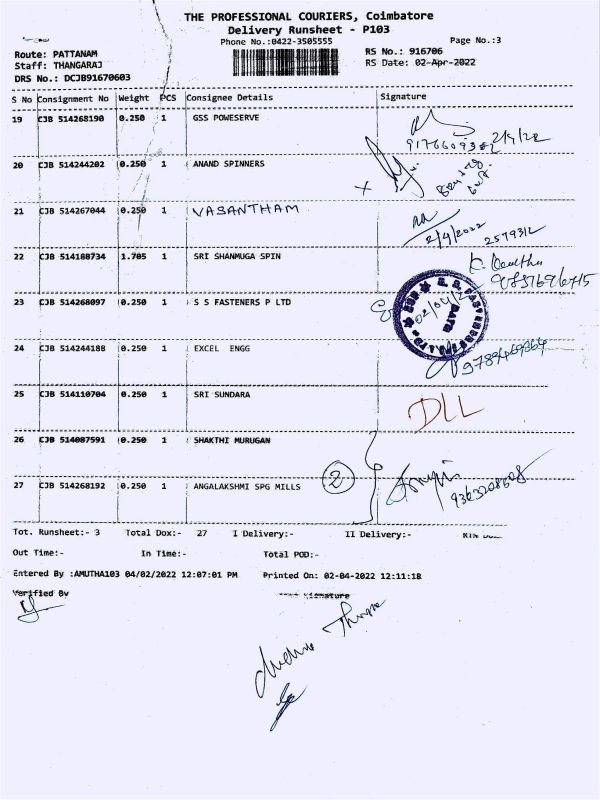 THE PROFESSIONAL COURIERS, Coimbatore
Delivery Runsheet - P103
Phone No.:0422-3505555
Page No.:3
Route: PATTANAM
RS No.: 916706
Staff: THANGARAJ
RS Date: 02-Apr-2022
DRS No.: DCJB91670603
S No Consignment No Weight PCS Consignee Details Signature
19 CJB 514268190 0.250 1 GSS POWESERVE
2/4/22
20 CJB 514244202 0.250 1 ANAND SPINNERS
21 CJB 514267044 0.250 1 VASANTHAM
2/4/2022
22 CJB 514188734 1.705 1 SRI SHANMUGA SPIN
23 CJB 514268097 0.250 1 S S FASTENERS P LTD
24 CJB 514244188 0.250 1 EXCEL ENGG
25 CJB 514110704 0.250 1 SRI SUNDARA DLL
26 CJB 514087591 0.250 1 SHAKTHI MURUGAN
27 CJB 514268192 0.250 1 ANGALAKSHMI SPG MILLS 2
Tot. Runsheet:- 3 Total Dox:- 27 I Delivery:- II Delivery:-
Out Time:- In Time:- Total POD:-
Entered By :AMUTHA103 04/02/2022 12:07:01 PM Printed On: 02-04-2022 12:11:18
Verified By